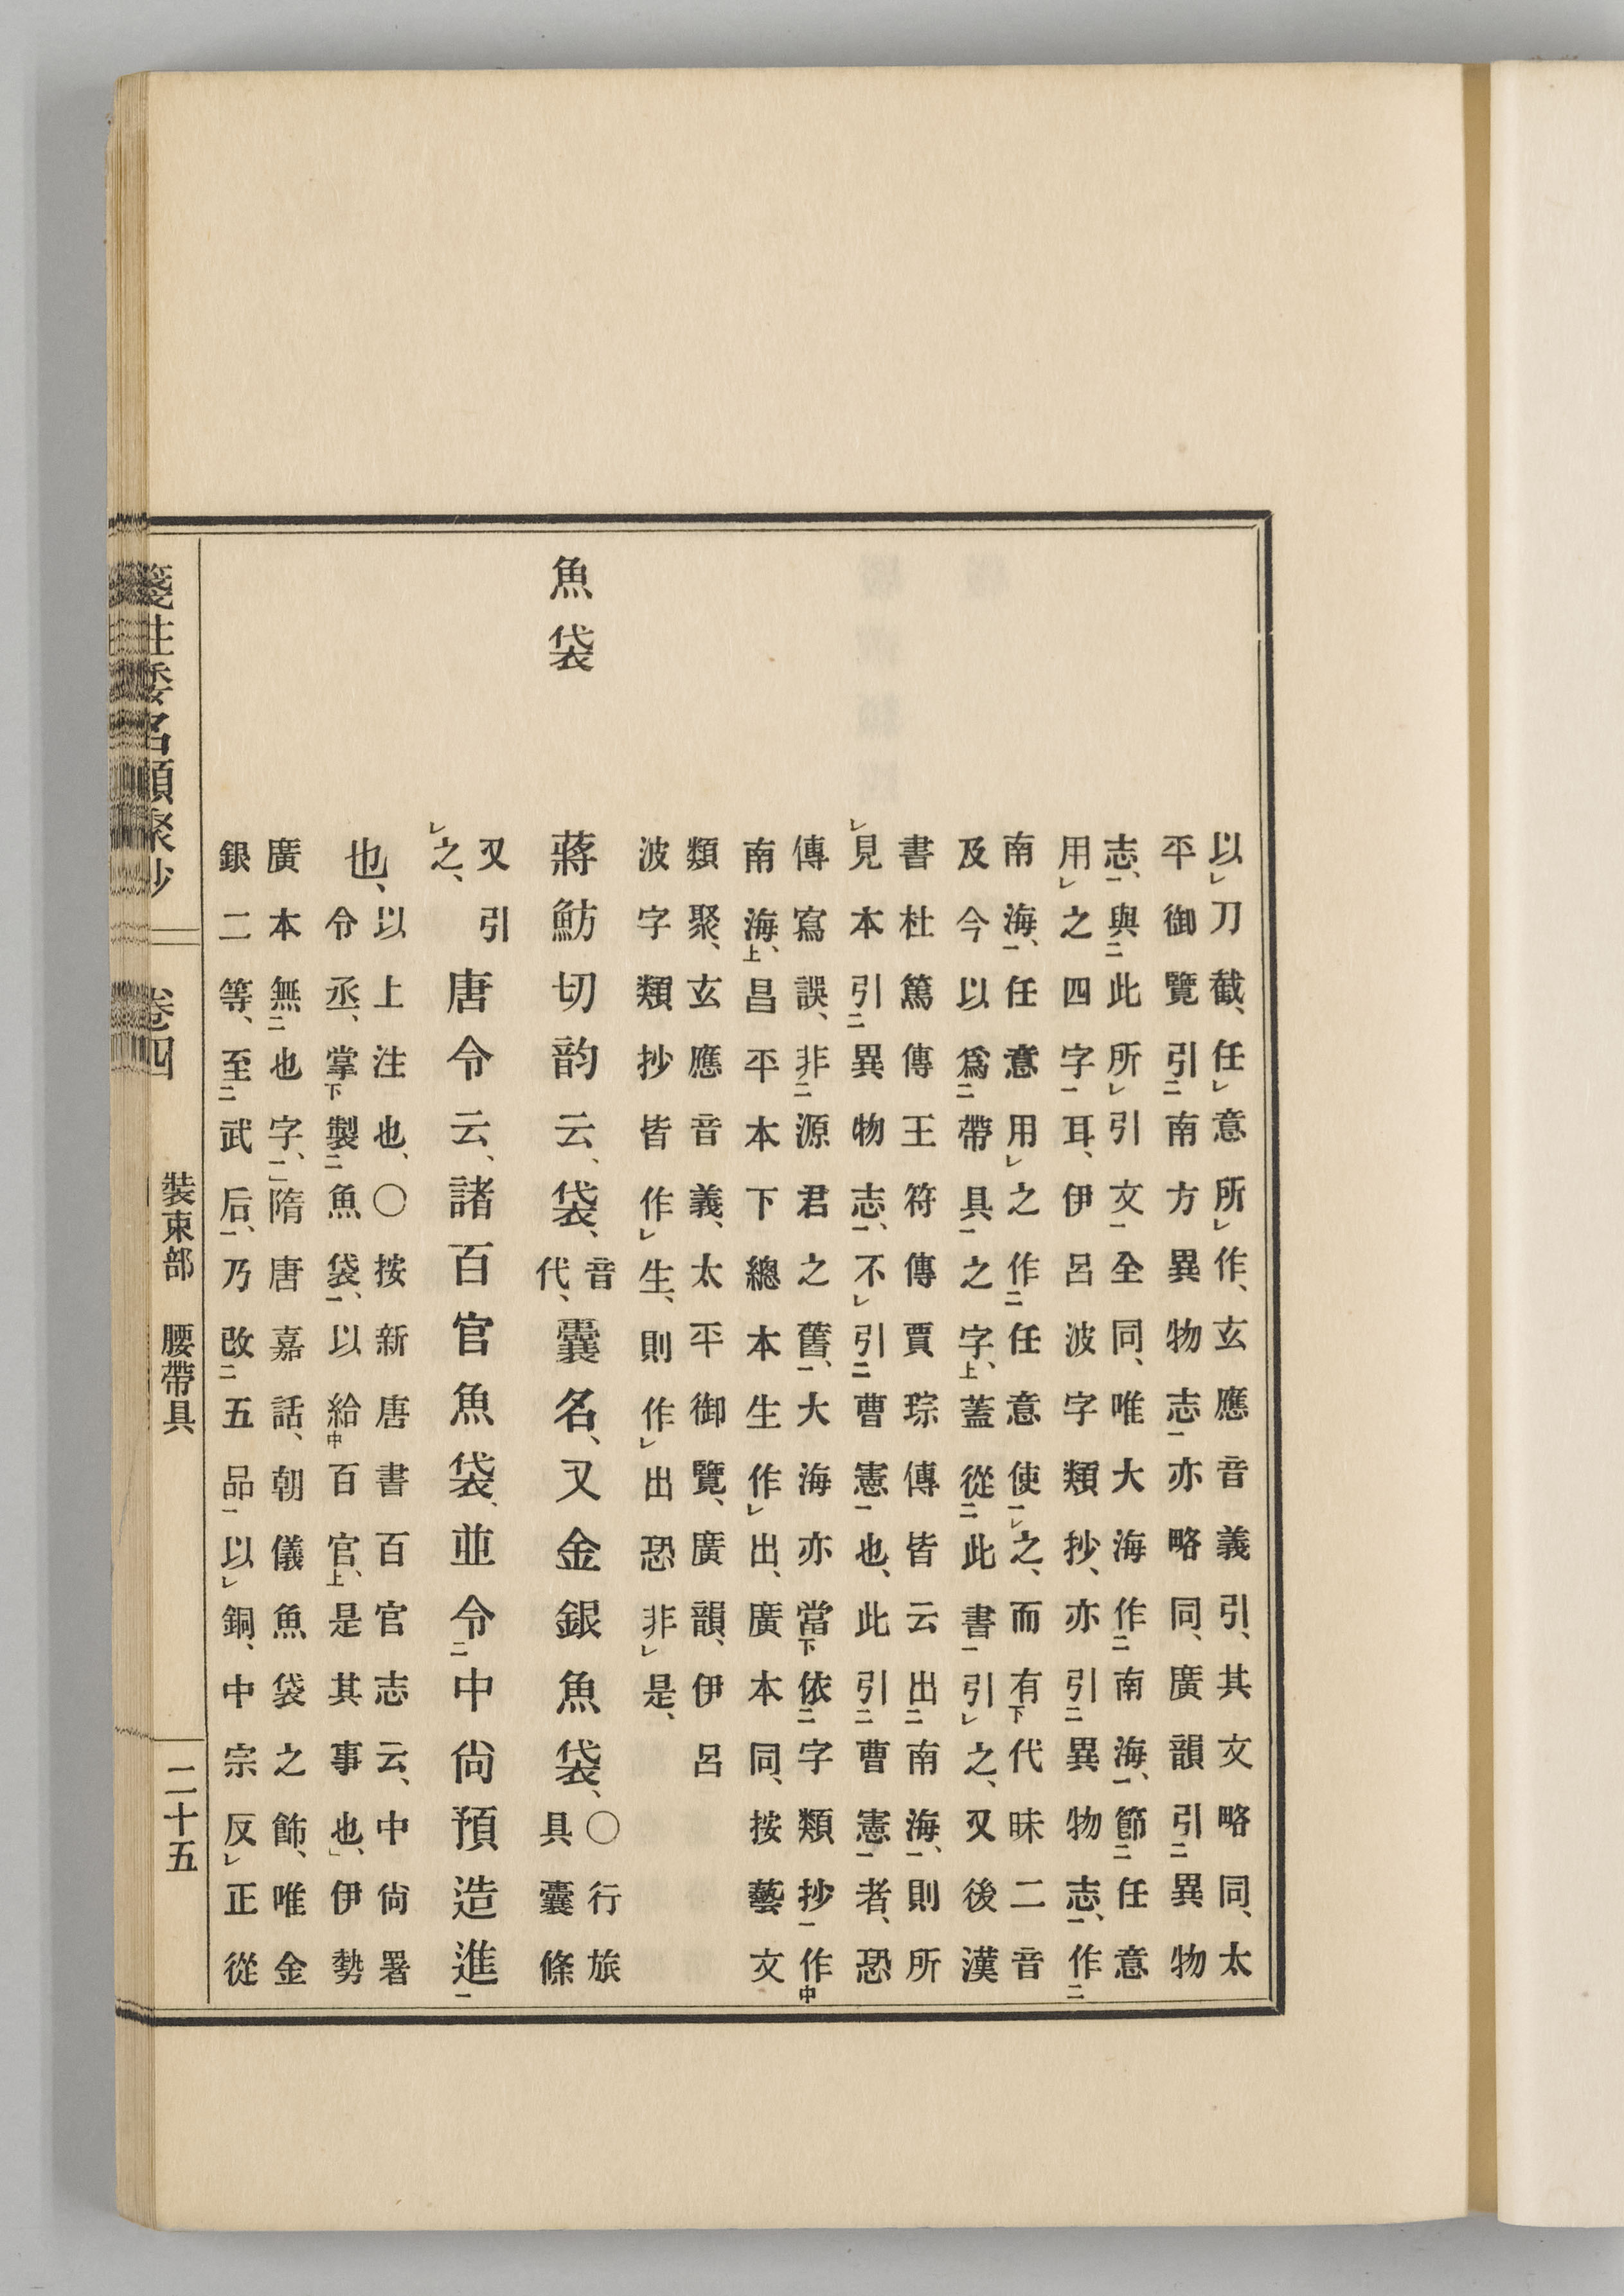 以レ刀截、任レ意所レ作、玄應音義引、其文略同、太
平御覽引二南方異物志一亦略同、廣韻引二異物
志一、與二此所レ引文一全同、唯大海作二南海一、節二任意
用レ之四字一耳、伊呂波字類抄、亦引二異物志一、作二
南海一、任意用レ之作二任意使一レ之、而有下代昧二音
及今以爲二帶具一之字上、蓋從二此書一引レ之、又後漢
書杜篤傳王符傳賈琮傳皆云出二南海一、則所
レ見本引二異物志一、不レ引二曹憲一也、此引二曹憲一者、恐
傳寫誤、非二源君之舊一、大海亦當下依二字類抄一作中
南海上、昌平本下總本生作レ出、廣本同、按藝文
類聚、玄應音義、太平御覽、廣韻、伊呂
波字類抄皆作レ生、則作レ出恐非レ是、
魚袋
蔣魴切韵云、袋、音代、囊名、又金銀魚袋、○行旅具囊條
又引レ之、唐令云、諸百官魚袋、並令二中尙預造進一
也、以上注也、○按新唐書百官志云、中尙署
令丞、掌下製二魚袋一、以給中百官上、是其事也、」伊勢
廣本無二也字一、」隋唐嘉話、朝儀魚袋之飾、唯金
銀二等、至二武后一、乃改二五品一以レ銅、中宗反レ正從
箋注倭名類聚抄 卷四 裝束部 腰帶具 二十五